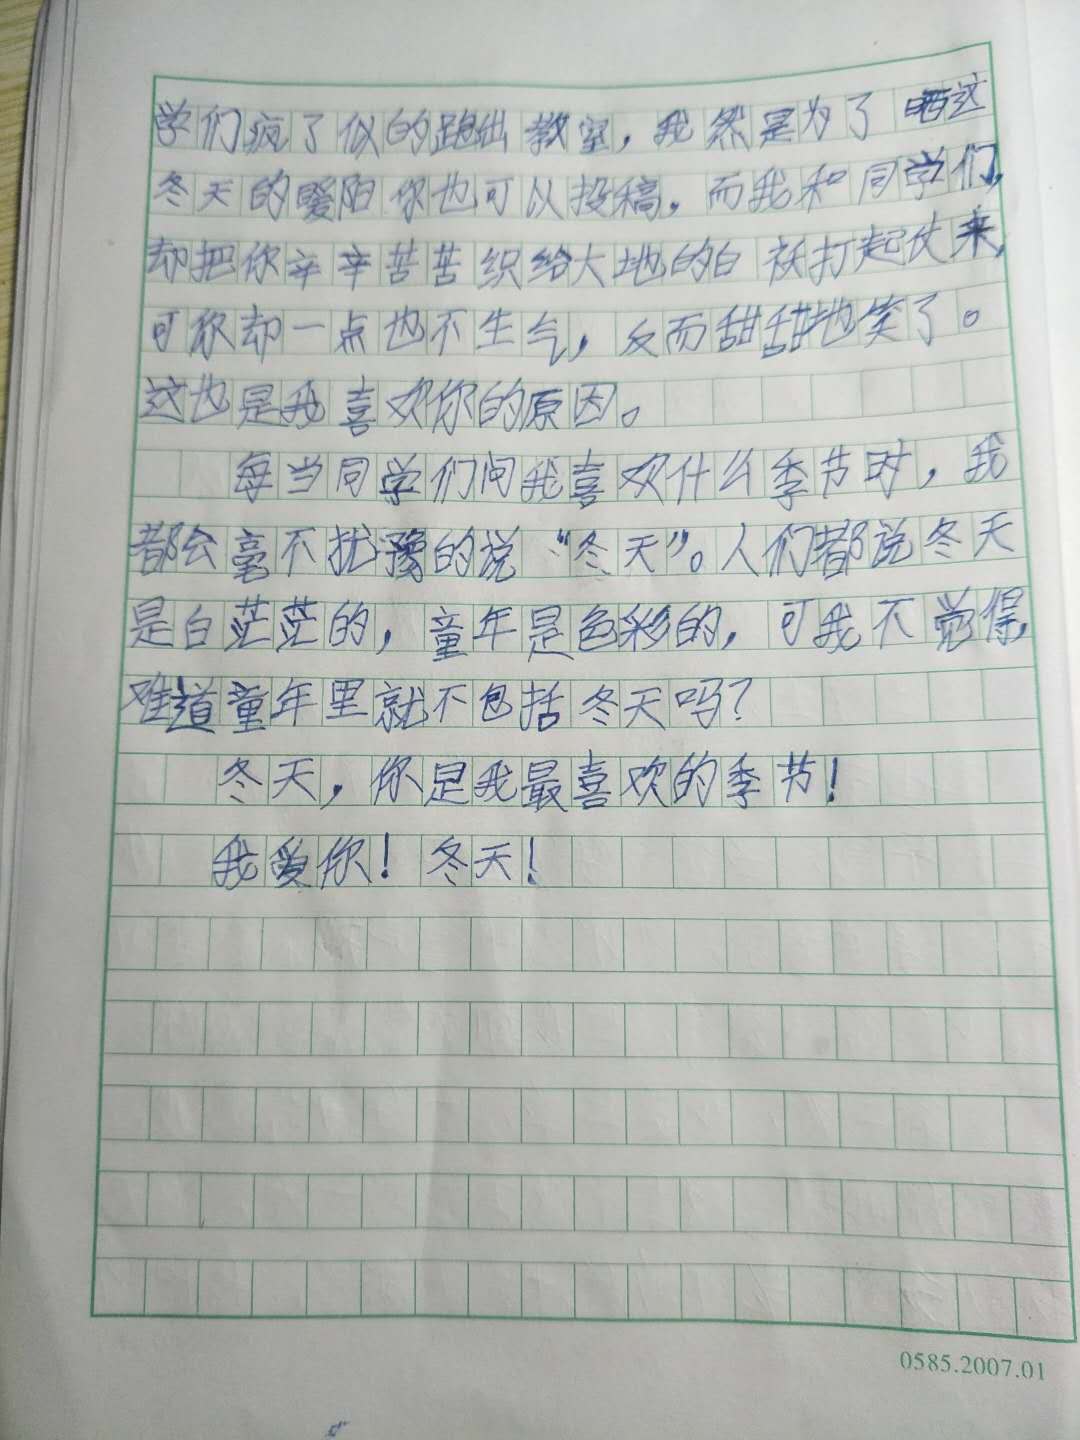 学们疯了似的跑出教室，我然是为了晒这
冬天的暖阳你也可以投稿，而我和同学们，
却把你辛辛苦苦织给大地的白袄打起仗来，
可你却一点也不生气，反而甜甜地笑了。
这也是我喜欢你的原因。
每当同学们问我喜欢什么季节时，我
都会毫不扰豫的说“冬天”。人们都说冬天
是白茫茫的，童年是色彩的，可我不觉得，
难道童年里就不包括冬天吗？
冬天，你是我最喜欢的季节！
我爱你！冬天！
0585.2007.01